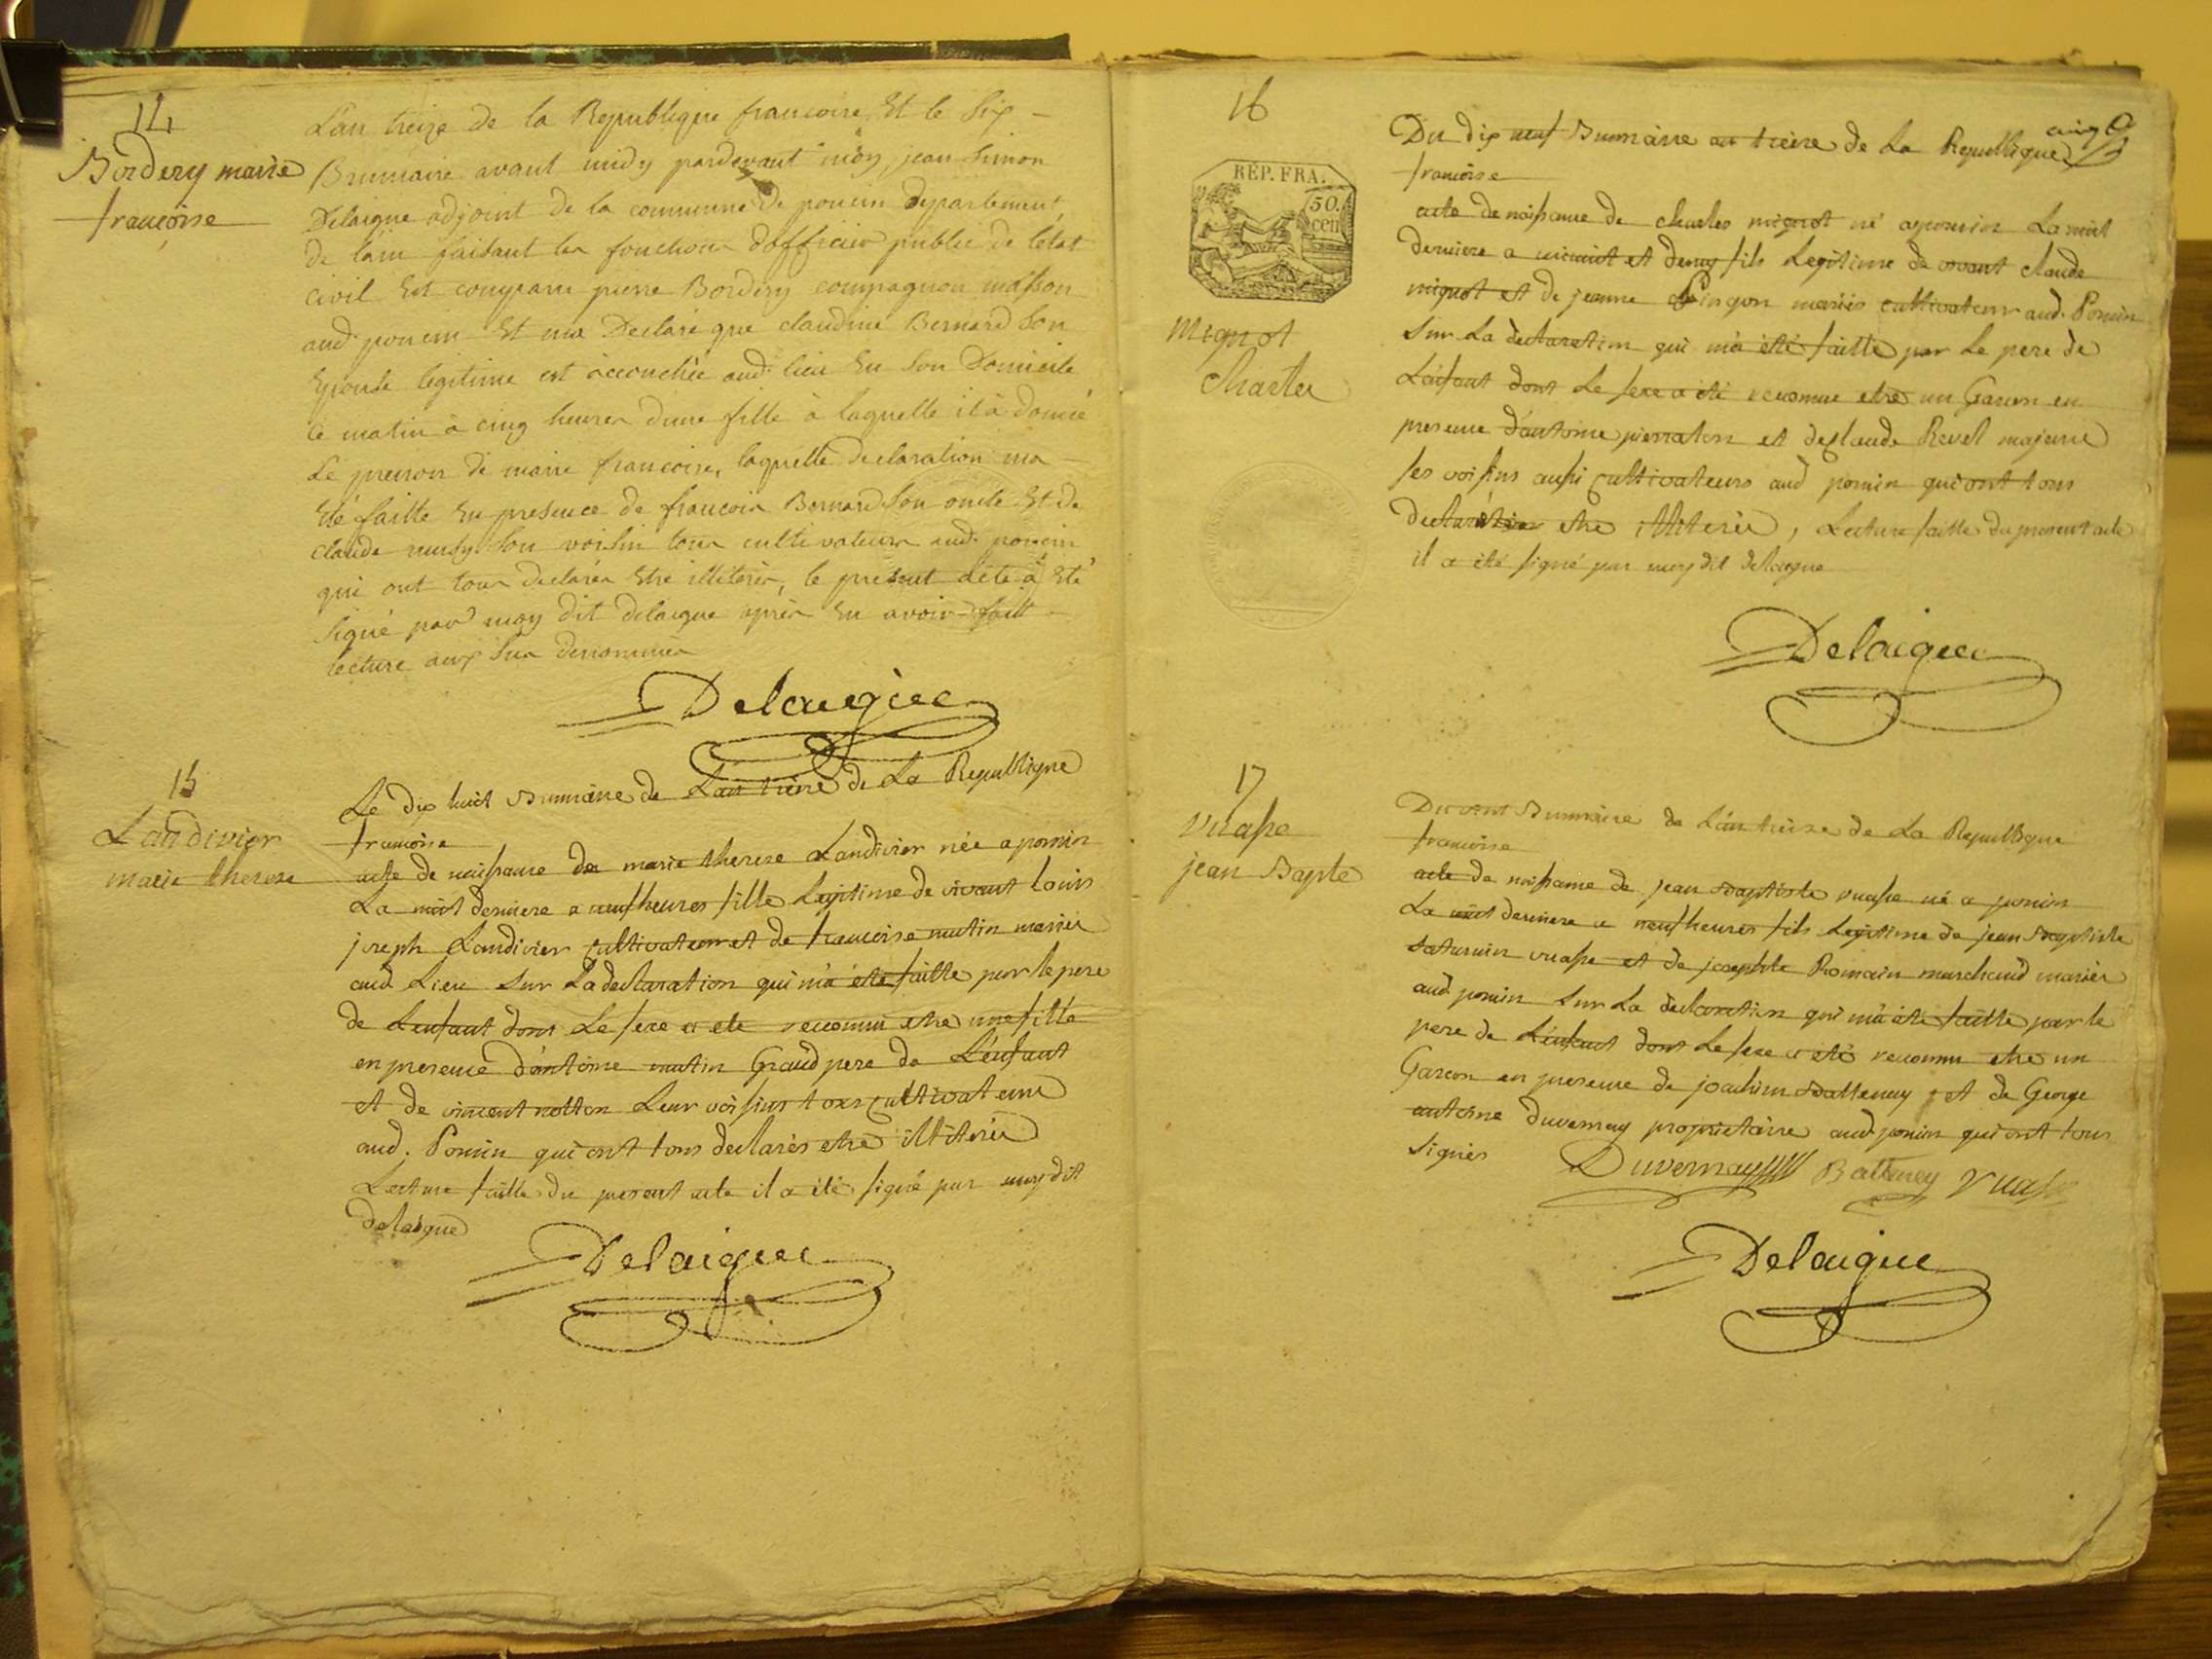 14
Bordery marie
francoise
L'an treize de la Republique francoise, Et le Six
Brumaire avant midy pardevant moy, jean Simon
Delaigue adjoint de la commune de poncin departement
de lain faisant les fonctions dofficier public de letat
civil Est comparu pierre Bordery compagnon masson
aud. poncin Et ma Declaré que claudine Bernard Son
Epouse legitime est accouchée aud. lieu En Son Domicile
ce matin à cinq heures dune fille à laquelle il à donné
Le prenon de marie francoise, laquelle declaration ma
Eté faitte En presence de francois Bernard Son oncle Et de
claude Son voisin tous cultivateurs aud. poncin
qui ont tous declarés Etre illiterés, le present acte à Eté
Signé par moy dit delaigue après En avoir faitt
lecture aux Sus denommés
Delaigue
15
Landivier
marie therese
Le dix huit Brumaire de L'an treize de La Republique
francoise
acte de naissance de marie therese Landivier née a poncin
La nuit derniere a neuf heures fille Legitime de vivant Louis
joseph Landivier cultivateur et de francoise mutin mariés
aud. Lieu Sur La declaration qui m'a été faitte par le pere
de L'enfant dont Le sexe a eté reconnu etre une fille
en presence d'antoine mutin Grand pere de L'enfant
et de vincent notton Leur voisins tous cultivateurs
aud. Poncin qui ont tous declarés etre illiterés
Lecture faitte du present acte il a été signé par moy dit
delaigue
Delaigue
16
cinq
RÉP. FRA.
50.
cen
Mignot
Charles
Du dix neuf Brumaire an treize de La Republique
francoise
acte de naissance de charles mignot né a poncin La nuit
derniere a minuit et demy fils Legitime de vivant claude
mignot et de jeanne Pingon mariés cultivateurs aud. Poncin
Sur La declaration qui m'a été faitte par Le pere de
L'enfant dont Le sexe a été reconnu etre un Garcon en
presence d'antoine pierraton et de claude Revel majeurs
ses voisins aussi cultivateurs aud poncin qui ont tous
declarés etre illiterés, Lecture faitte du present acte
il a été signé par moy dit delaigue
Delaigue
17
Vuasse
jean Bapte
Du vint Brumaire de L'an treize de La Republique
francoise
acte de naissance de jean Baptiste vuasse né a poncin
La nuit derniere a neuf heures fils Legitime de jean Baptiste
Saturnin vuasse et de josephte Romain marchand mariés
aud poncin Sur La declaration qui m'a été faitte par le
pere de L'enfant dont Le sexe a été reconnu etre un
Garcon en presence de joachim Battenay et de George
antoine Duvernay proprietaire aud poncin qui ont tous
signés
Duvernay Battenay Vuasse
Delaigue